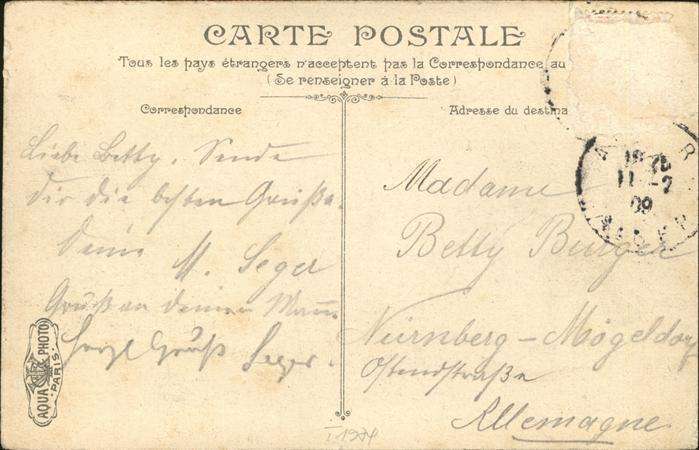 CARTE POSTALE
Tous les pays étrangers n'acceptent pas la Correspondance au
(Se renseigner à la Poste)
Correspondance
Adresse du destina
Liebe Betty. Sende
dir die besten Grüße.
Deine
M. Seger
Gruß an deinen Mann
Herzl Gruß Seger.
Madame
Betty Burger
Nürnberg-Mögeldorf
Ostendstraße
Allemagne.
11-7
09
AQUA PHOTO
PARIS